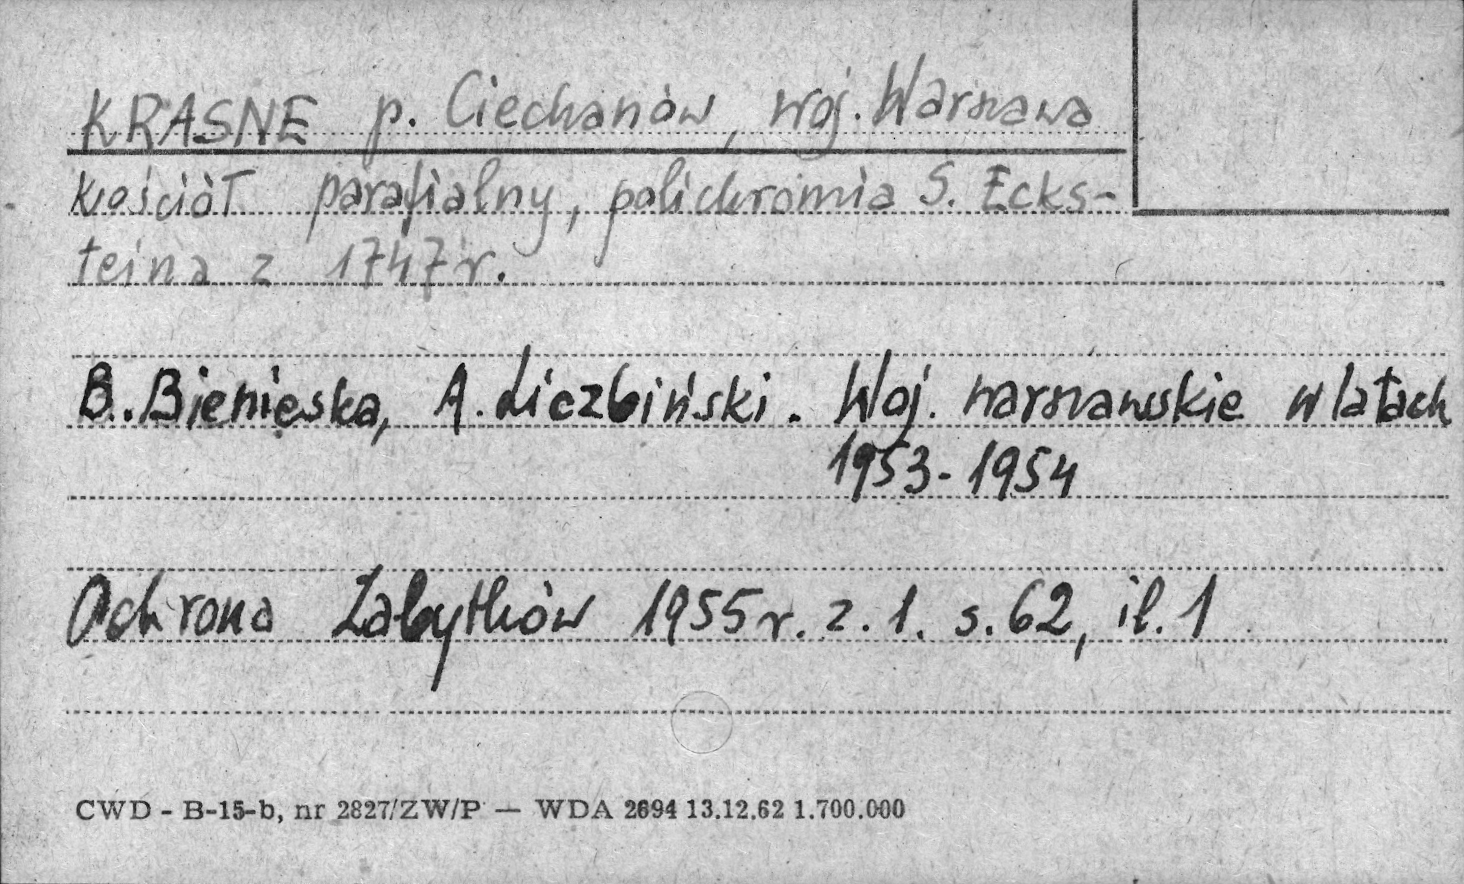 KRASNE p. Ciechanów, woj. Warszawa
kościół parafialny, polichromia S. Ecks-
teina z 1747 r.
B. Bienieska, A. Liczbiński. Woj. warszawskie w latach
1953-1954
Ochrona Zabytków 1955 r. z. 1. s. 62, il. 1
CWD - B-15-b, nr 2827/ZW/P — WDA 2694 13.12.62 1.700.000